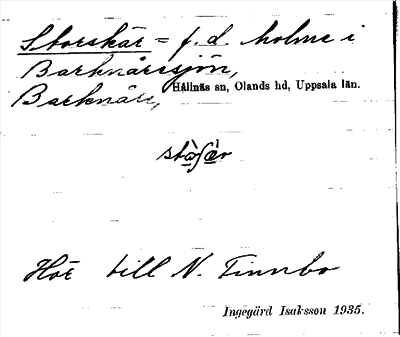 Storskär = f.d. holme i
Barknåresjön,
Barknåre, Hållnäs sn, Olands hd, Uppsala län.
Hör till N. Finnbo
Ingegärd Isaksson 1935.